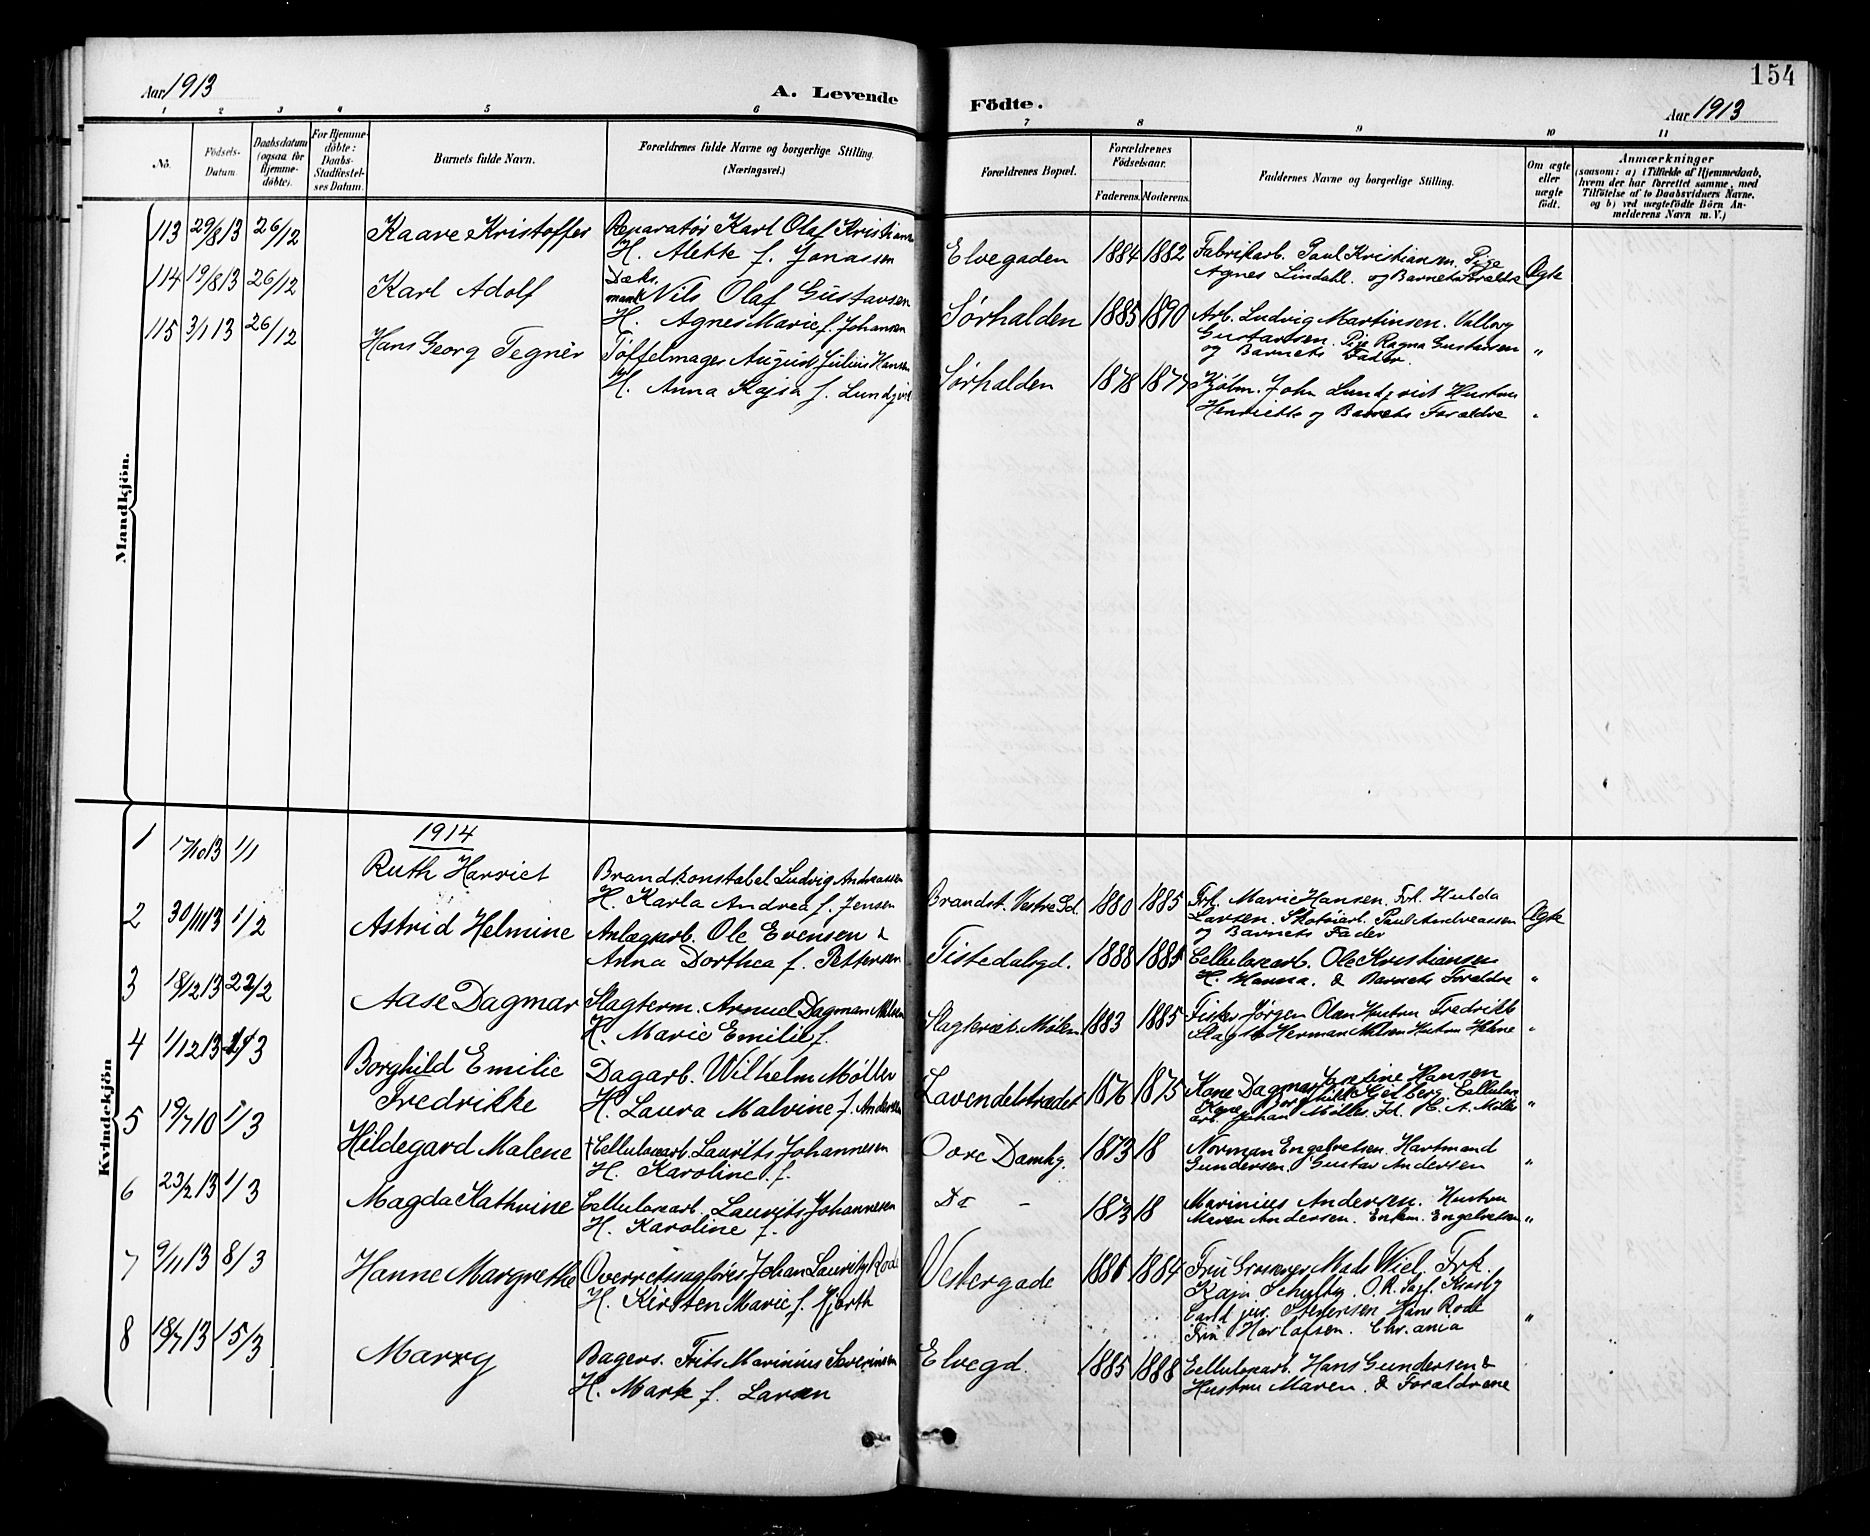 154
Aar 1913
A. Levende Födte.
Aar 1913
1 2 3 4 5 6 7 8 9 10 11
No.
Födsels-Datum.
Daabsdatum (ogsaa for Hjemme-döbte).
For Hjemme-döbte: Daabs-Stadfæstel-ses Datum.
Barnets fulde Navn.
Forældrenes fulde Navne og borgerlige Stilling (Næringsvei.)
Forældrenes Bopæl.
Forældrenes Födselsaar.
Faderens. Moderens.
Faddernes Navne og borgerlige Stilling.
Om ægte eller uægte födt.
Anmærkninger
(saasom: a) i Tilfælde af Hjemmedaab, hvem der har forrettet samme, med Tilföielse af to Daabsvidners Navne, og b) ved uægtefödte Börn An-melderens Navn m. V.)
Mandkjön.
113 29/8 13 26/12 Kaare Kristoffer Reparatør Karl Olaf Kristians
H. Alette f. Jonassen Elvegaden 1884 1882 Fabrikarb. Paul Kristiansen. Pige
Agnes Lindahl. og Barnets Forældre Ægte
114 19/8 13 26/12 Karl Adolf Dæks-
mand Nils Olaf Gustavsen
H. Agnes Marie f. Johansen Sørhalden 1885 1890 Arb. Ludvig Martinsen. Valborg
Gustavsen. Pige Ragna Gustavsen
og Barnets Fader. "
115 3/1 13 26/12 Hans Georg Tegnér Tøffelmager August Julius Hansen
H. Anna Kajsa f. Lundqvist Sørhalden 1878 1877 Kjøbm. John Lundqvist Hustru
Henriette og Barnets Forældre "
Kvindekjön
1914
1 17/10 13 1/1 Ruth Harriet Brandkonstabel Ludvig Andreassen
H. Karla Andrea f. Jensen Brandst. Vestre Gd. 1880 1885 Frk. Marie Hansen. Frk. Hulda
Larsen. Skotøiarb. Paul Andreassen
og Barnets Fader Ægte
2 30/11 13 1/2 Astrid Helmine Anlægarb. Ole Evensen &
Anna Dorthea f. Pettersen Tistedalsgd. 1888 1885 Cellulosearb. Ole Kristiansen
H. Hanna. & Barnets Forældre "
3 18/12 13 22/2 Aase Dagmar Slagterm. Arnud Dagmann Nilsen
H. Marie Emilie f. Slagteriet. Mølen 1883 1885 Fisker Jørgen Olsen Hustru Fredrikke
Slagter Herman Nilsen Hustru Helene "
4 1/12 13 1/3 Borghild Emilie
Fredrikke Dagarb. Wilhelm Møller
H. Laura Malvine f. Andersen Lavendelstrædet 1876 1875 Kone Dagmar Josefine Hansen
Kone Borghild Heiberg. Cellulose
arb. Johan Møller. Jd. H. A. Møller "
5 19/7 10 1/3 Hildegard Malene † Cellulosearb. Laurits Johannesen
H. Karoline f. Ovre Damhg. 1873 18 Norman Engelretsen. Hartmand
Gundersen. Gustav Andersen "
6 23/2 13 1/3 Magda Kathrine Cellulosearb. Laurits Johannesen
H. Karoline f. Do – 1873 18 Marinius Andersen. Hustru
Maren Andersen. Enkm. Engelretsen "
7 9/11 13 8/3 Hanne Margrethe Overretssagfører Johan Lauritz Rode
H. Kirsten Marie f. Hjorth Vestergade 1881 1884 Fru Grosserer Mads Wiel. Frk.
Kaja Schultz. O. R. Sagf. Kiesby
Carl jur. Stenersen Hans Rode
Fru Harlofsen. Chr.ania "
8 18/7 13 15/3 Marry Bagers. Frits Marinius Severinsen
H. Marte f. Larsen Elvegd. 1885 1888 Cellulosearb. Hans Gundersen &
Hustru Maren. & Forældrene